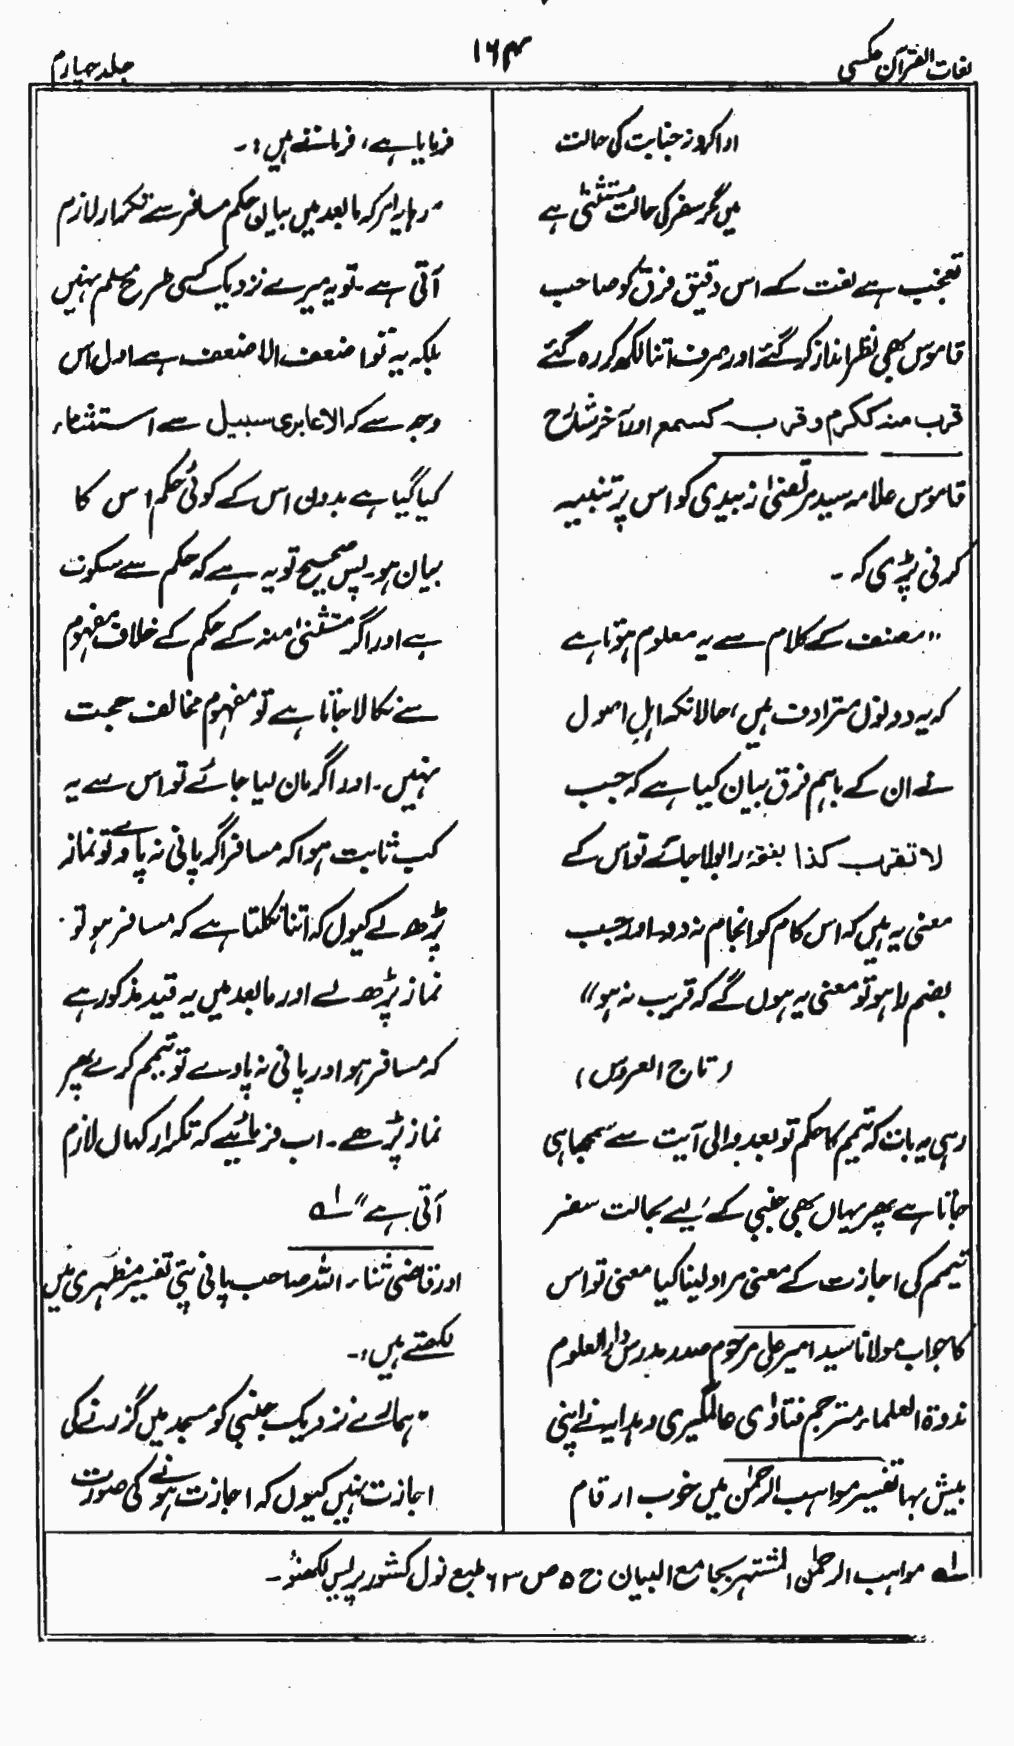 لغات القرآن عکسی
۱۶۴
جلد چہارم
ادا کرو نہ جنابت کی حالت
میں مگر سفر کی حالت مستثنیٰ ہے
تعجب ہے لغت کے اس دقیق فرق کو صاحب
قاموس بھی نظر انداز کر گئے اور صرف اتنا لکھ کر رہ گئے
قرب منہ ککرم و قرب کسمع اور آخر شارح
قاموس علامہ سید مرتضیٰ زبیدی کو اس پر تنبیہ
کرنی پڑی کہ ۔
"مصنف کے کلام سے یہ معلوم ہوتا ہے
کہ یہ دونوں مترادف ہیں، حالانکہ اہل اصول
نے ان کے باہم فرق بیان کیا ہے کہ جب
لا تقرب کذا بفتہ را بولا جائے تو اس کے
معنی یہ ہیں کہ اس کام کو انجام نہ دو۔ اور جب
بضم را ہو تو معنی یہ ہوں گے کہ قریب نہ ہو"
(تاج العروس)
رہی یہ بات کہ تیمم کا حکم تو بعد والی آیت سے سمجھا ہی
جاتا ہے پھر یہاں بھی جنبی کے لیے بحالت سفر
تیمم کی اجازت کے معنی مراد لینا کیا معنی تو اس
کا جواب مولانا سید امیر علی مرحوم صدر مدرس دار العلوم
ندوۃ العلماء مترجم فتاوٰی عالمگیری و ہدایہ نے اپنی
بیش بہا تفسیر مواہب الرحمٰن میں خوب ارقام
فرمایا ہے، فرماتے ہیں :۔
"رہا یہ امر کہ مابعد میں بیان حکم مسافر سے تکرار لازم
آتی ہے۔ تو یہ میرے نزدیک کسی طرح مسلم نہیں
بلکہ یہ تو اضعف الاضعف ہے اول اس
وجہ سے کہ الا عابری سبیل سے استثناء
کیا گیا ہے بدون اس کے کوئی حکم اس کا
بیان ہو۔ پس صحیح تو یہ ہے کہ حکم سے سکوت
ہے اور اگر مستثنیٰ منہ کے حکم کے خلاف مفہوم
سے نکالا جاتا ہے تو مفہوم مخالف حجت
نہیں۔ اور اگر مان لیا جائے تو اس سے یہ
کب ثابت ہوا کہ مسافر اگر پانی نہ پاوے تو نماز
پڑھ لے کیوں کہ اتنا نکلتا ہے کہ مسافر ہو تو
نماز پڑھ لے اور مابعد میں یہ قید مذکور ہے
کہ مسافر ہو اور پانی نہ پاوے تو تیمم کرے پھر
نماز پڑھے۔ اب فرمائیے کہ تکرار کہاں لازم
آتی ہے" ۱ھ
اور قاضی ثناء اللہ صاحب پانی پتی تفسیر مظہری میں
لکھتے ہیں :۔
"ہمارے نزدیک جنبی کو مسجد میں گزرنے کی
اجازت نہیں کیوں کہ اجازت ہونے کی صورت
۱ھ مواہب الرحمٰن المشتہر بجامع البیان ج ۵ ص ۶۳ طبع نول کشور پریس لکھنؤ۔